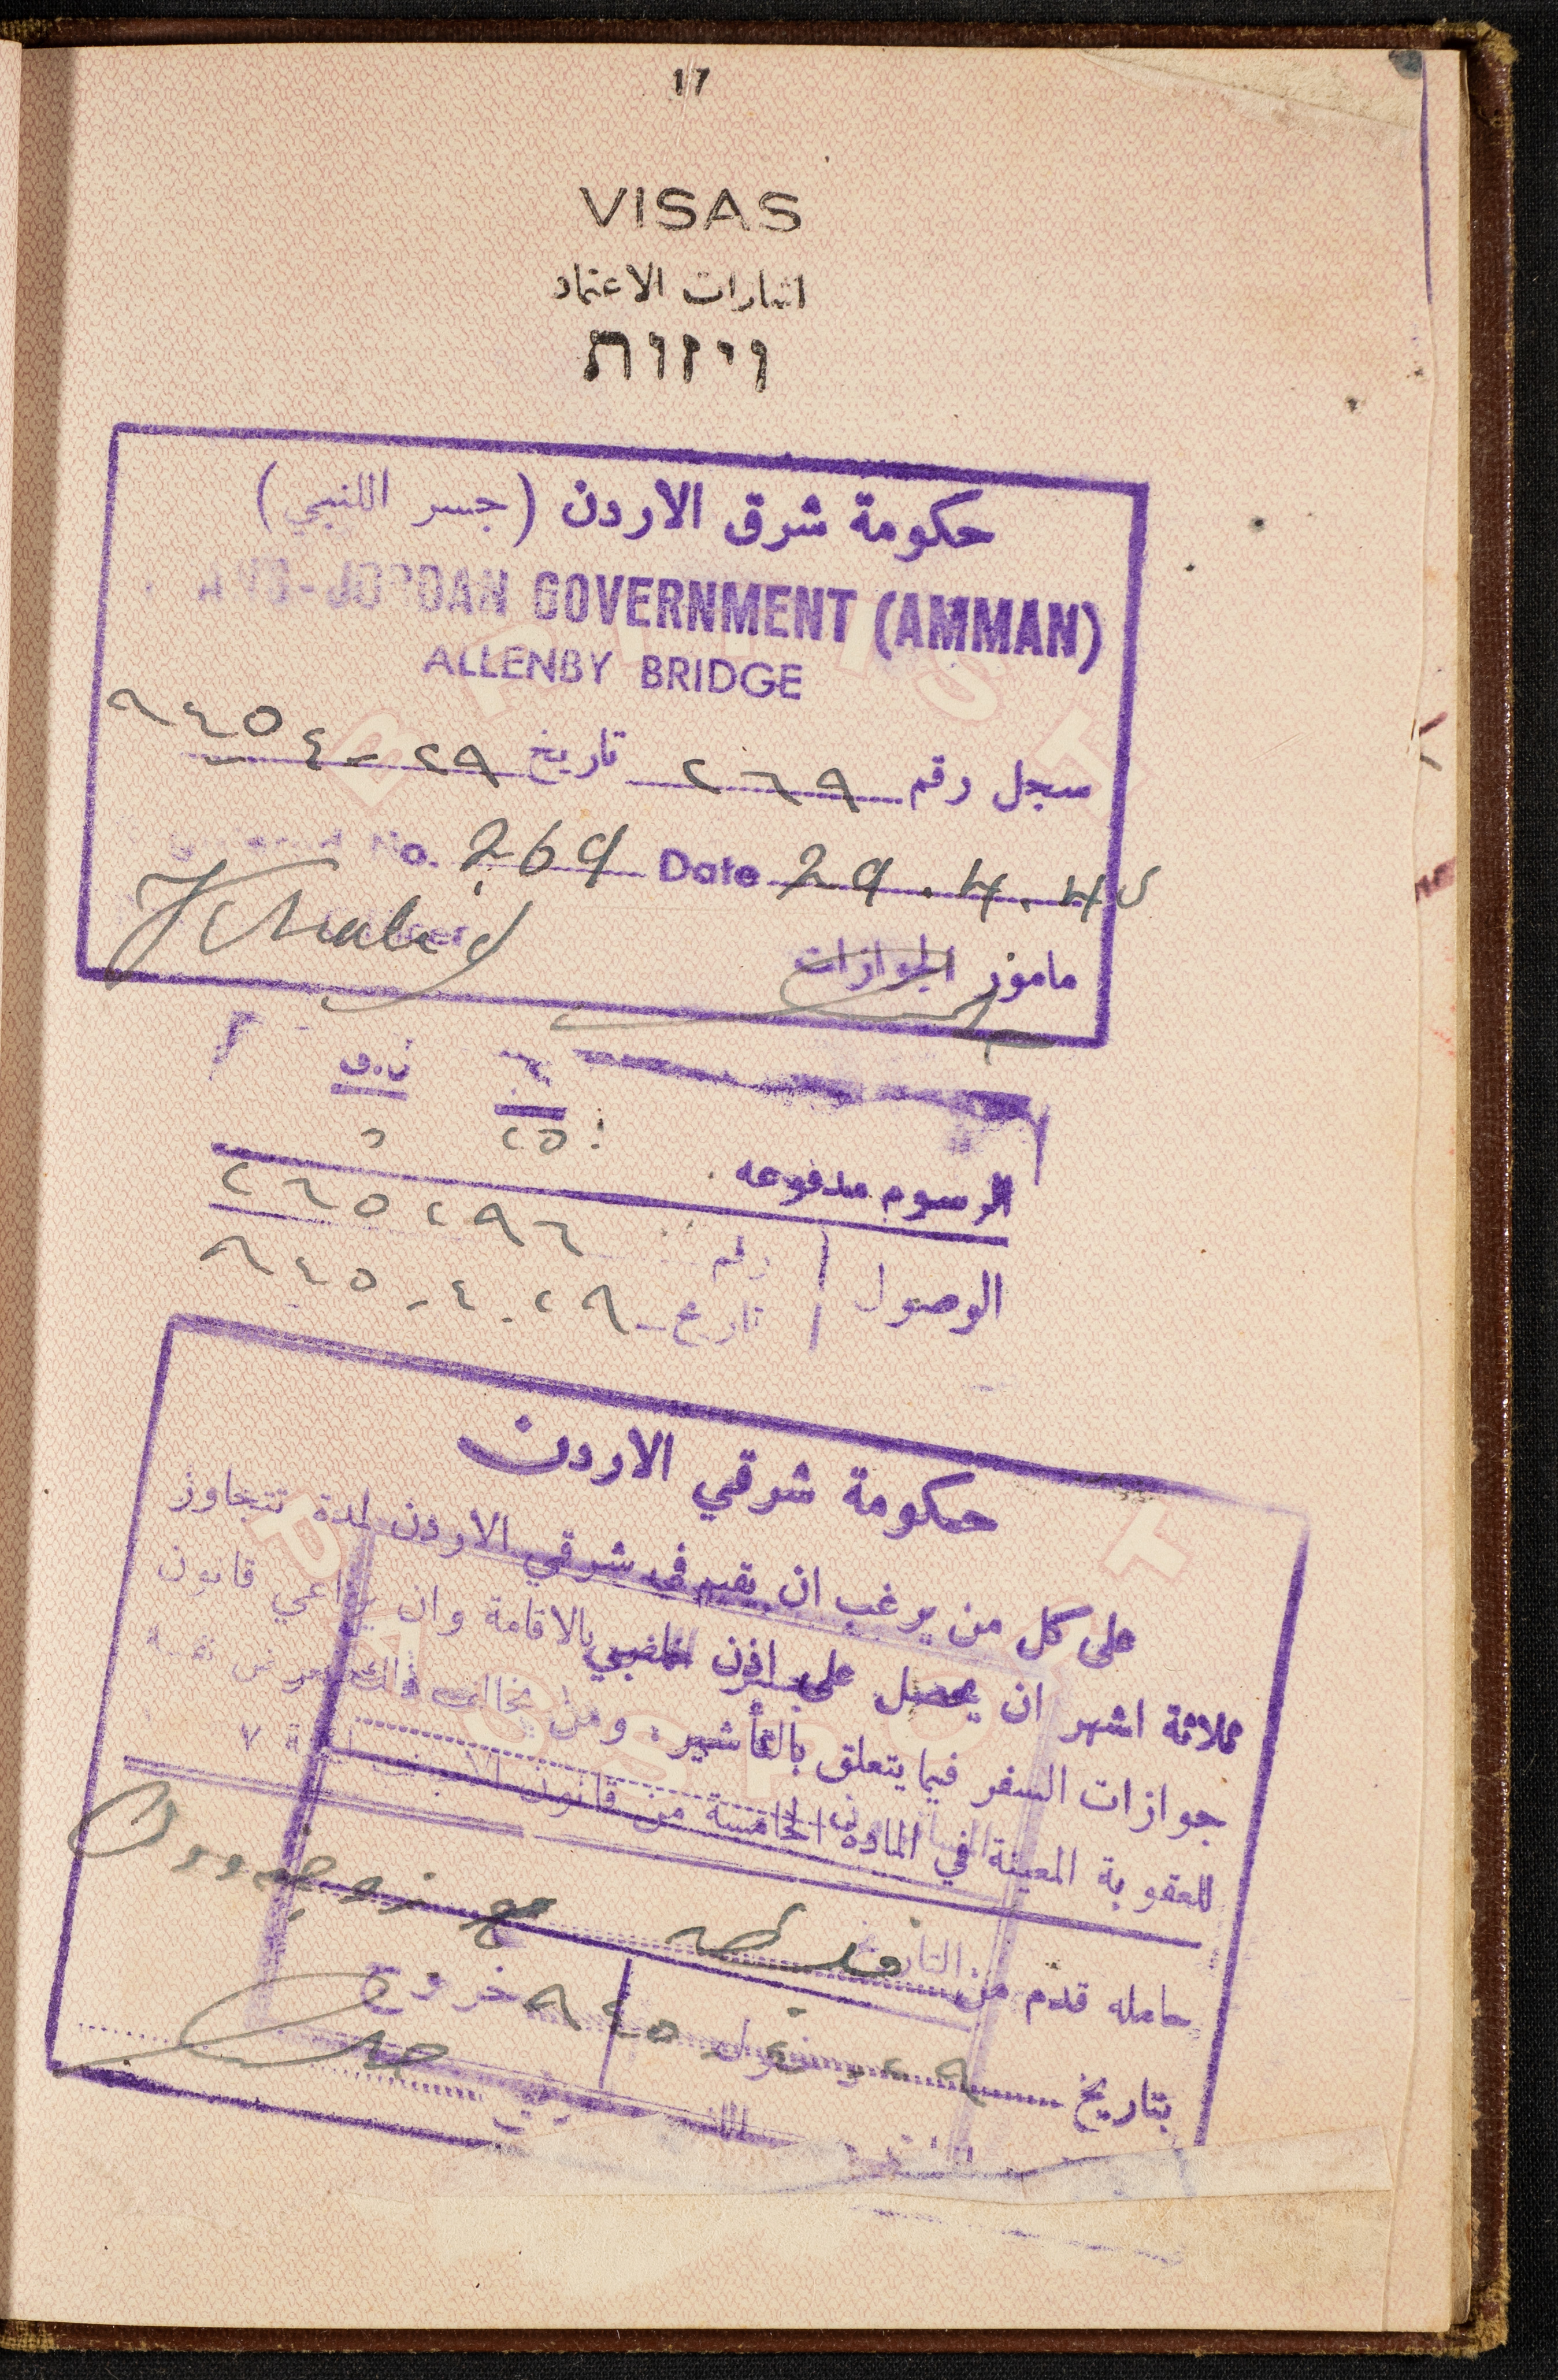 17
VISAS
اشارات الاعتماد
ויזות
حكومة شرق الاردن (جسر اللنبي)
JORDAN GOVERNMENT (AMMAN)
ALLENBY BRIDGE
سجل رقم ٢٦٩ تاريخ ٢٩-٤ ٩٤٥
No. 269 Date 29.4.45
مامور الجوازات
٢٥٠
الرسوم مدفوعه
الوصول رقم ٢٦٥٢٩٦
تاريخ ٢٩-٤-٩٤٥
حكومة شرقي الاردن
على كل من يرغب ان يقيم في شرقي الاردن لمدة تتجاوز
ثلاثة اشهر ان يحصل على اذن بالاقامة وان يراعي قانون
جوازات السفر فيما يتعلق بالتأشير. ومن يخالف ذلك يعرض نفسه
للعقوبة المعينة في المادة الخامسة من قانون
حامله قدم من مع
بتاريخ ٩٤٥
خروج